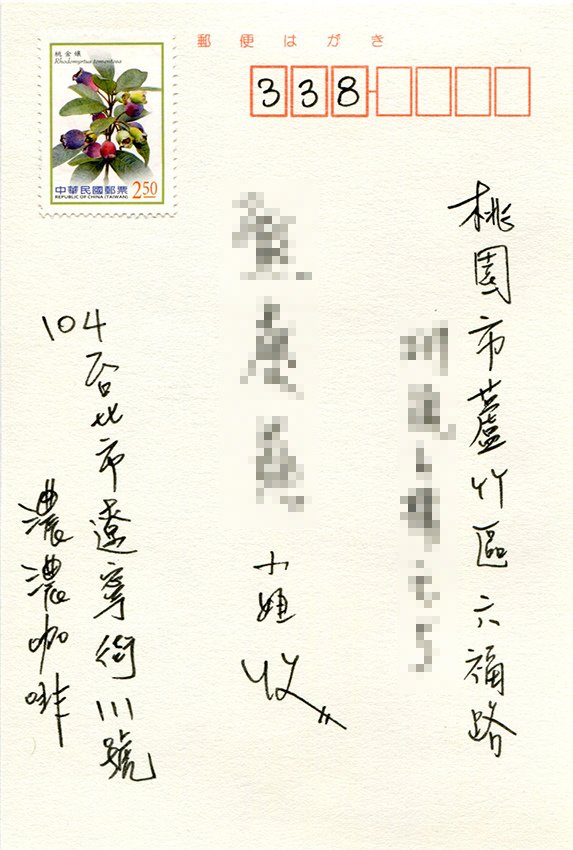 郵便はがき
338
桃金孃
Rhodomyrtus tomentosa
中華民國郵票 2.50
REPUBLIC OF CHINA (TAIWAN)
桃園市蘆竹區六福路
小姐 收
104
台北市遼寧街111號
濃濃咖啡